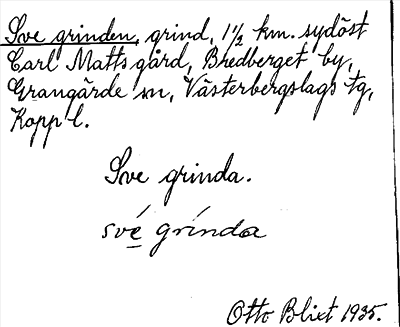 Sve grinden, grind, 1½ km. sydöst
Carl Matts gård, Bredberget by,
Grangärde sn, Västerbergslags tg,
Kopp l.
Sve grinda.
své grínda
Otto Blixt 1935.